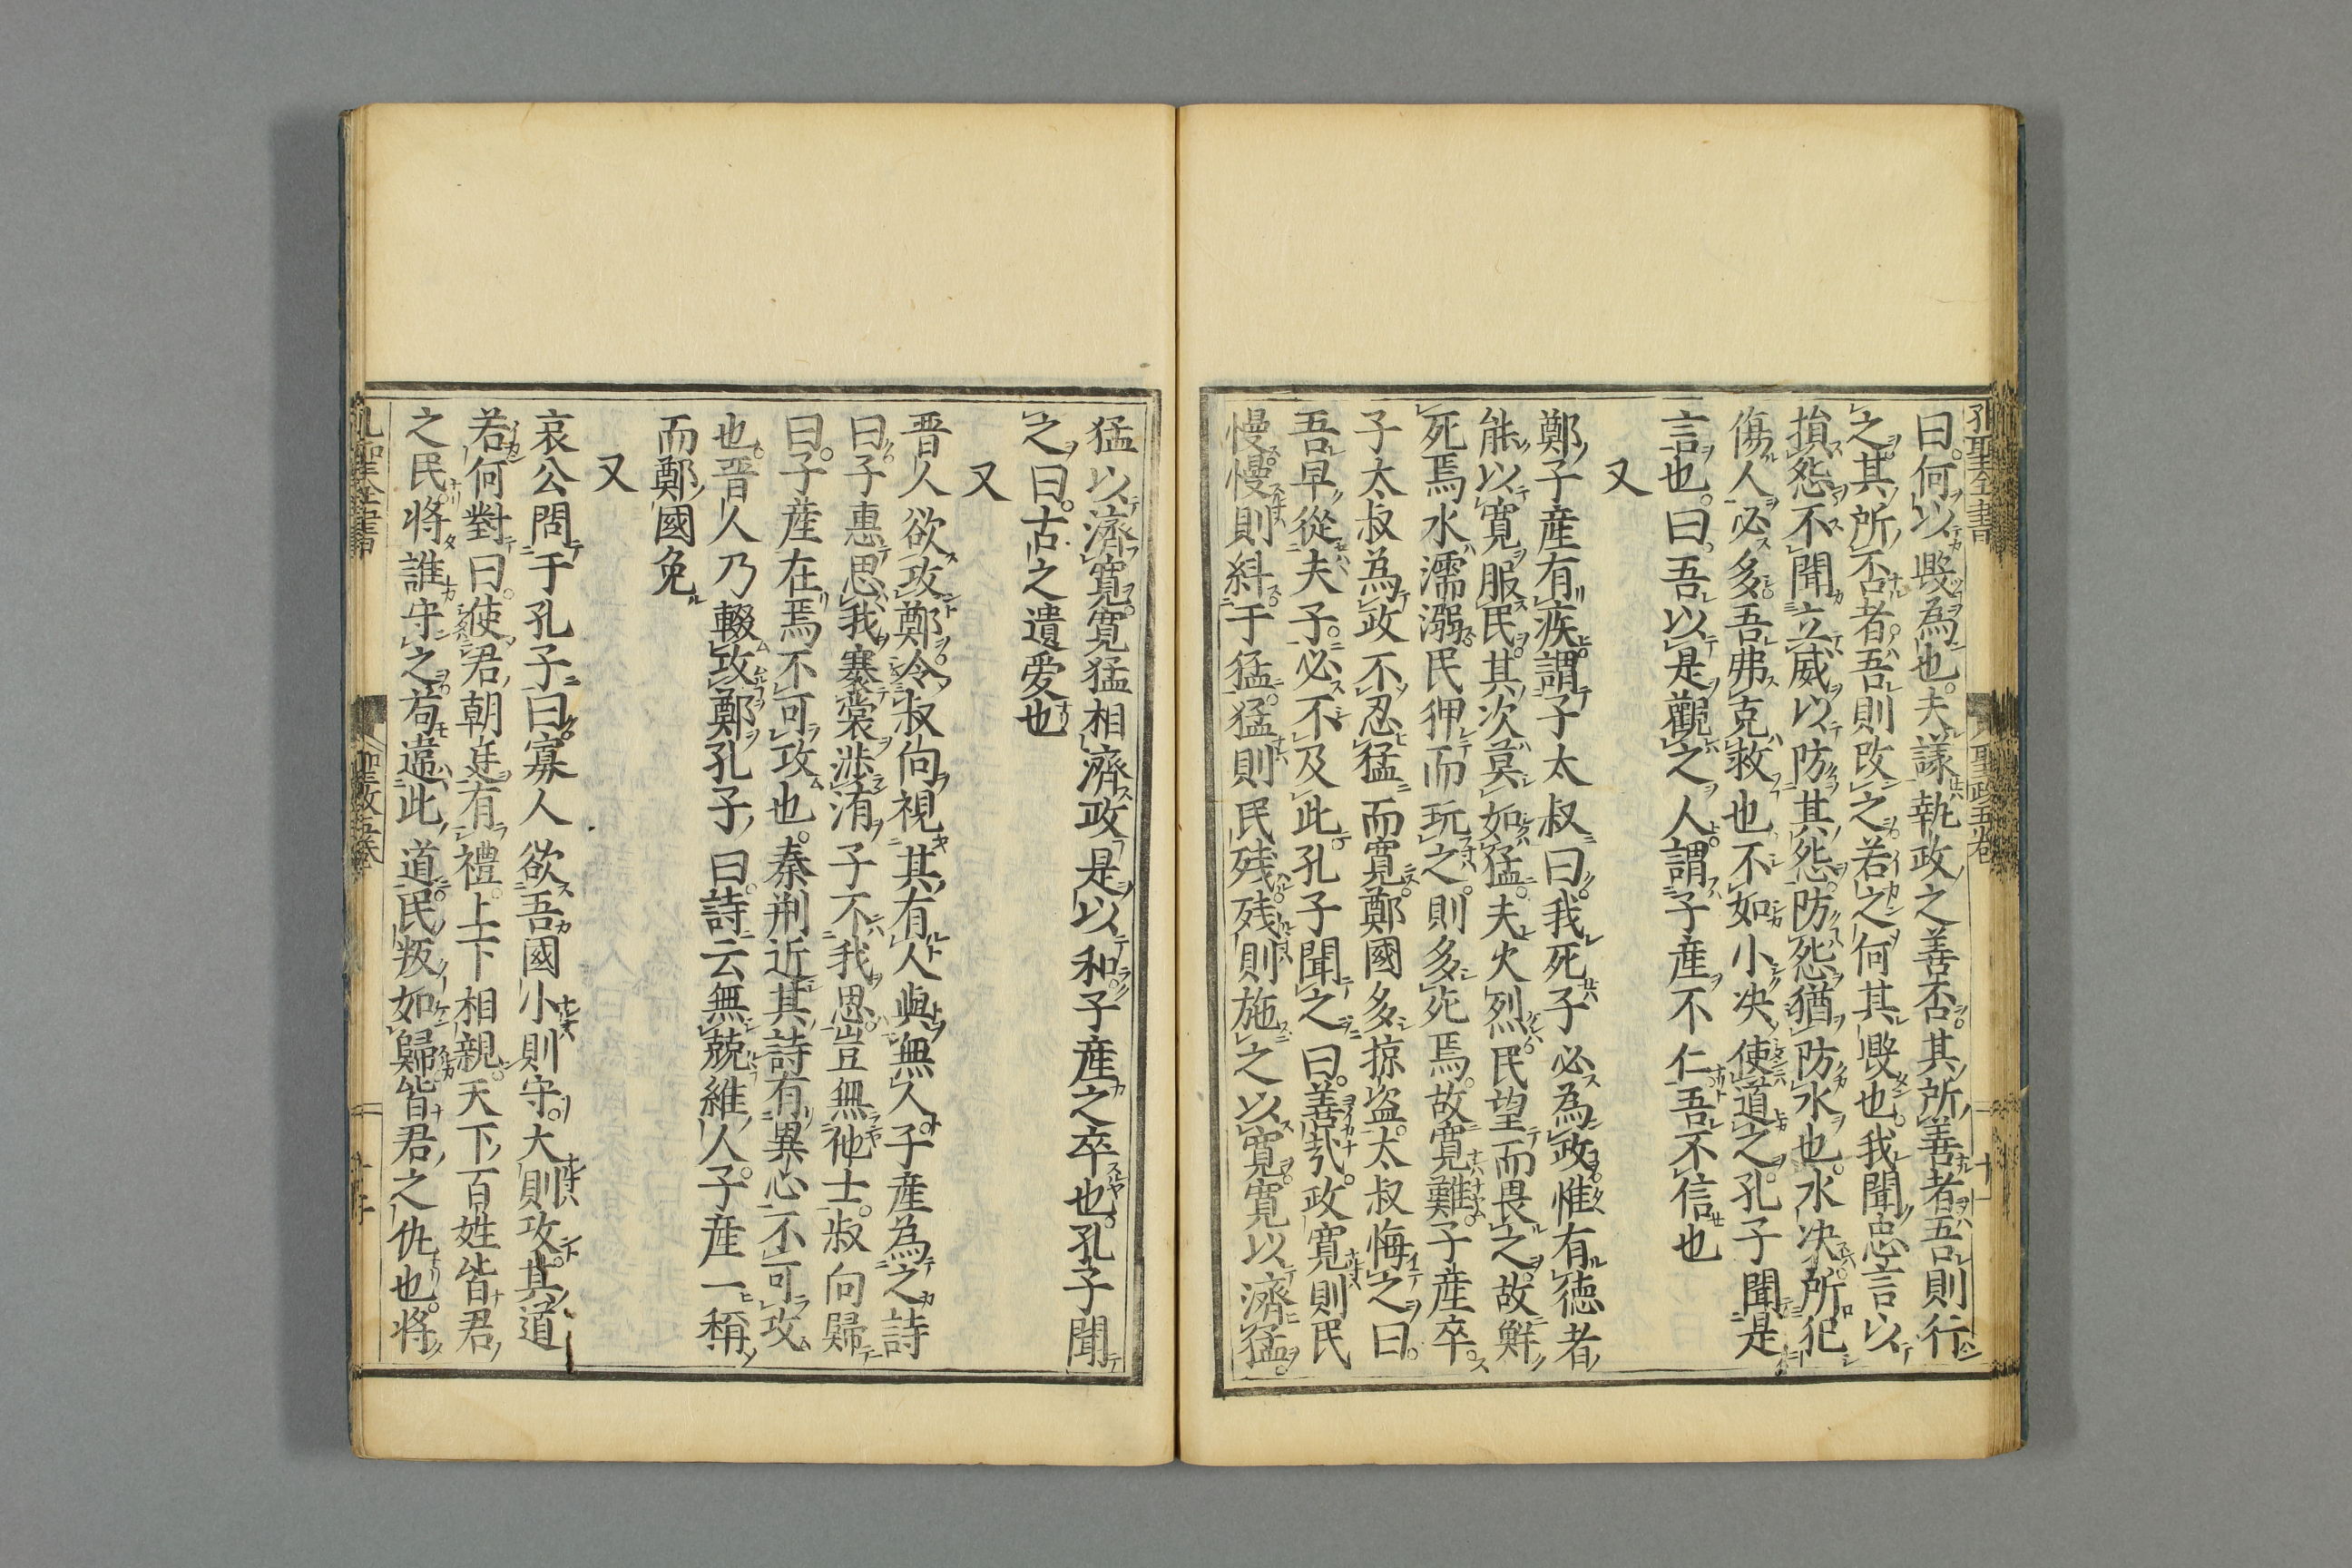 孔聖全書
聖政五卷
曰何以毀為也夫議執政之善否其所善者吾則行
之其所否者吾則改之若之何其毀也我聞忠言以
損怨不聞立威以防其怨防怨猶防水也水决所犯
傷人必多吾弗克救也不如小决使道之孔子聞是
言也曰吾以是觀之人謂子産不仁吾不信也
又
鄭子産有疾謂子太叔曰我死子必為政惟有德者
能以寬服民其次莫如猛夫火烈民望而畏之故鮮
死焉水濡溺民狎而玩之則多死焉故寬難子産卒
子太叔為政不忍猛而寬鄭國多掠盜太叔悔之曰
吾早從夫子必不及此孔子聞之曰善哉政寬則民
慢慢則糾于猛猛則民残残則施之以寬寬以濟猛
猛以濟寬寬猛相濟政是以和子産之卒也孔子聞
之曰古之遺愛也
又
晋人欲攻鄭令叔向視其有人與無人子産為之詩
曰子惠思我褰裳涉洧子不我思豈無他士叔向歸
曰子産在焉不可攻也秦荆近其詩有異心不可攻
也晋人乃輟攻鄭孔子曰詩云無競維人子産一稱
而鄭國免
又
哀公問于孔子曰寡人欲吾國小則守大則攻其道
若何對曰使君朝廷有禮上下相親天下百姓皆君
之民将誰守之苟違此道民叛如歸皆君之仇也将
孔聖全書
聖政五卷